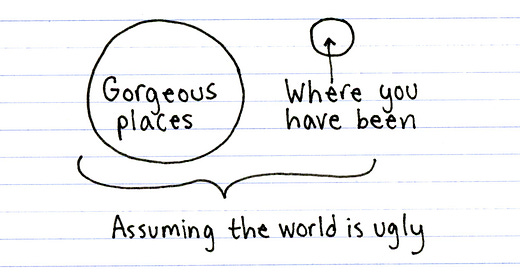 Gorgeous
places
Where you
have been
Assuming the world is ugly